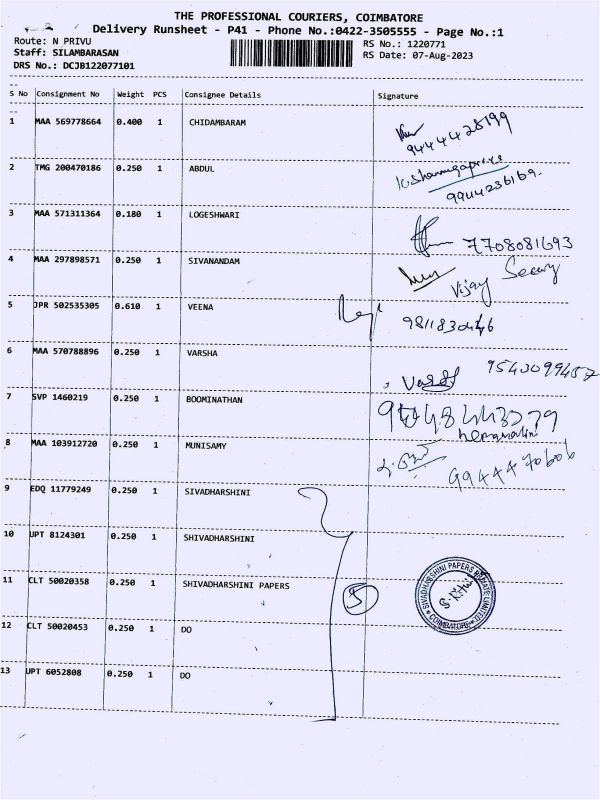 THE PROFESSIONAL COURIERS, COIMBATORE
Delivery Runsheet - P41 - Phone No.:0422-3505555 - Page No.:1
Route: N PRIVU RS No.: 1220771
Staff: SILAMBARASAN RS Date: 07-Aug-2023
DRS No.: DCJB122077101
S No Consignment No Weight PCS Consignee Details Signature
1 MAA 569778664 0.400 1 CHIDAMBARAM
9444428199
2 TMG 200470186 0.250 1 ABDUL
9944236169.
3 MAA 571311364 0.180 1 LOGESHWARI
7708081693
4 MAA 297898571 0.250 1 SIVANANDAM
Vijay Secury
5 JPR 502535305 0.610 1 VEENA
9811830446
6 MAA 570788896 0.250 1 VARSHA
9543099457
7 SVP 1460219 0.250 1 BOOMINATHAN
8 MAA 103912720 0.250 1 MUNISAMY
9944470606
9 EDQ 11779249 0.250 1 SIVADHARSHINI
10 UPT 8124301 0.250 1 SHIVADHARSHINI
11 CLT 50020358 0.250 1 SHIVADHARSHINI PAPERS 5
SIVADHARSHINI PAPERS PRIVATE LIMITED
COIMBATORE
12 CLT 50020453 0.250 1 DO
13 UPT 6052808 0.250 1 DO